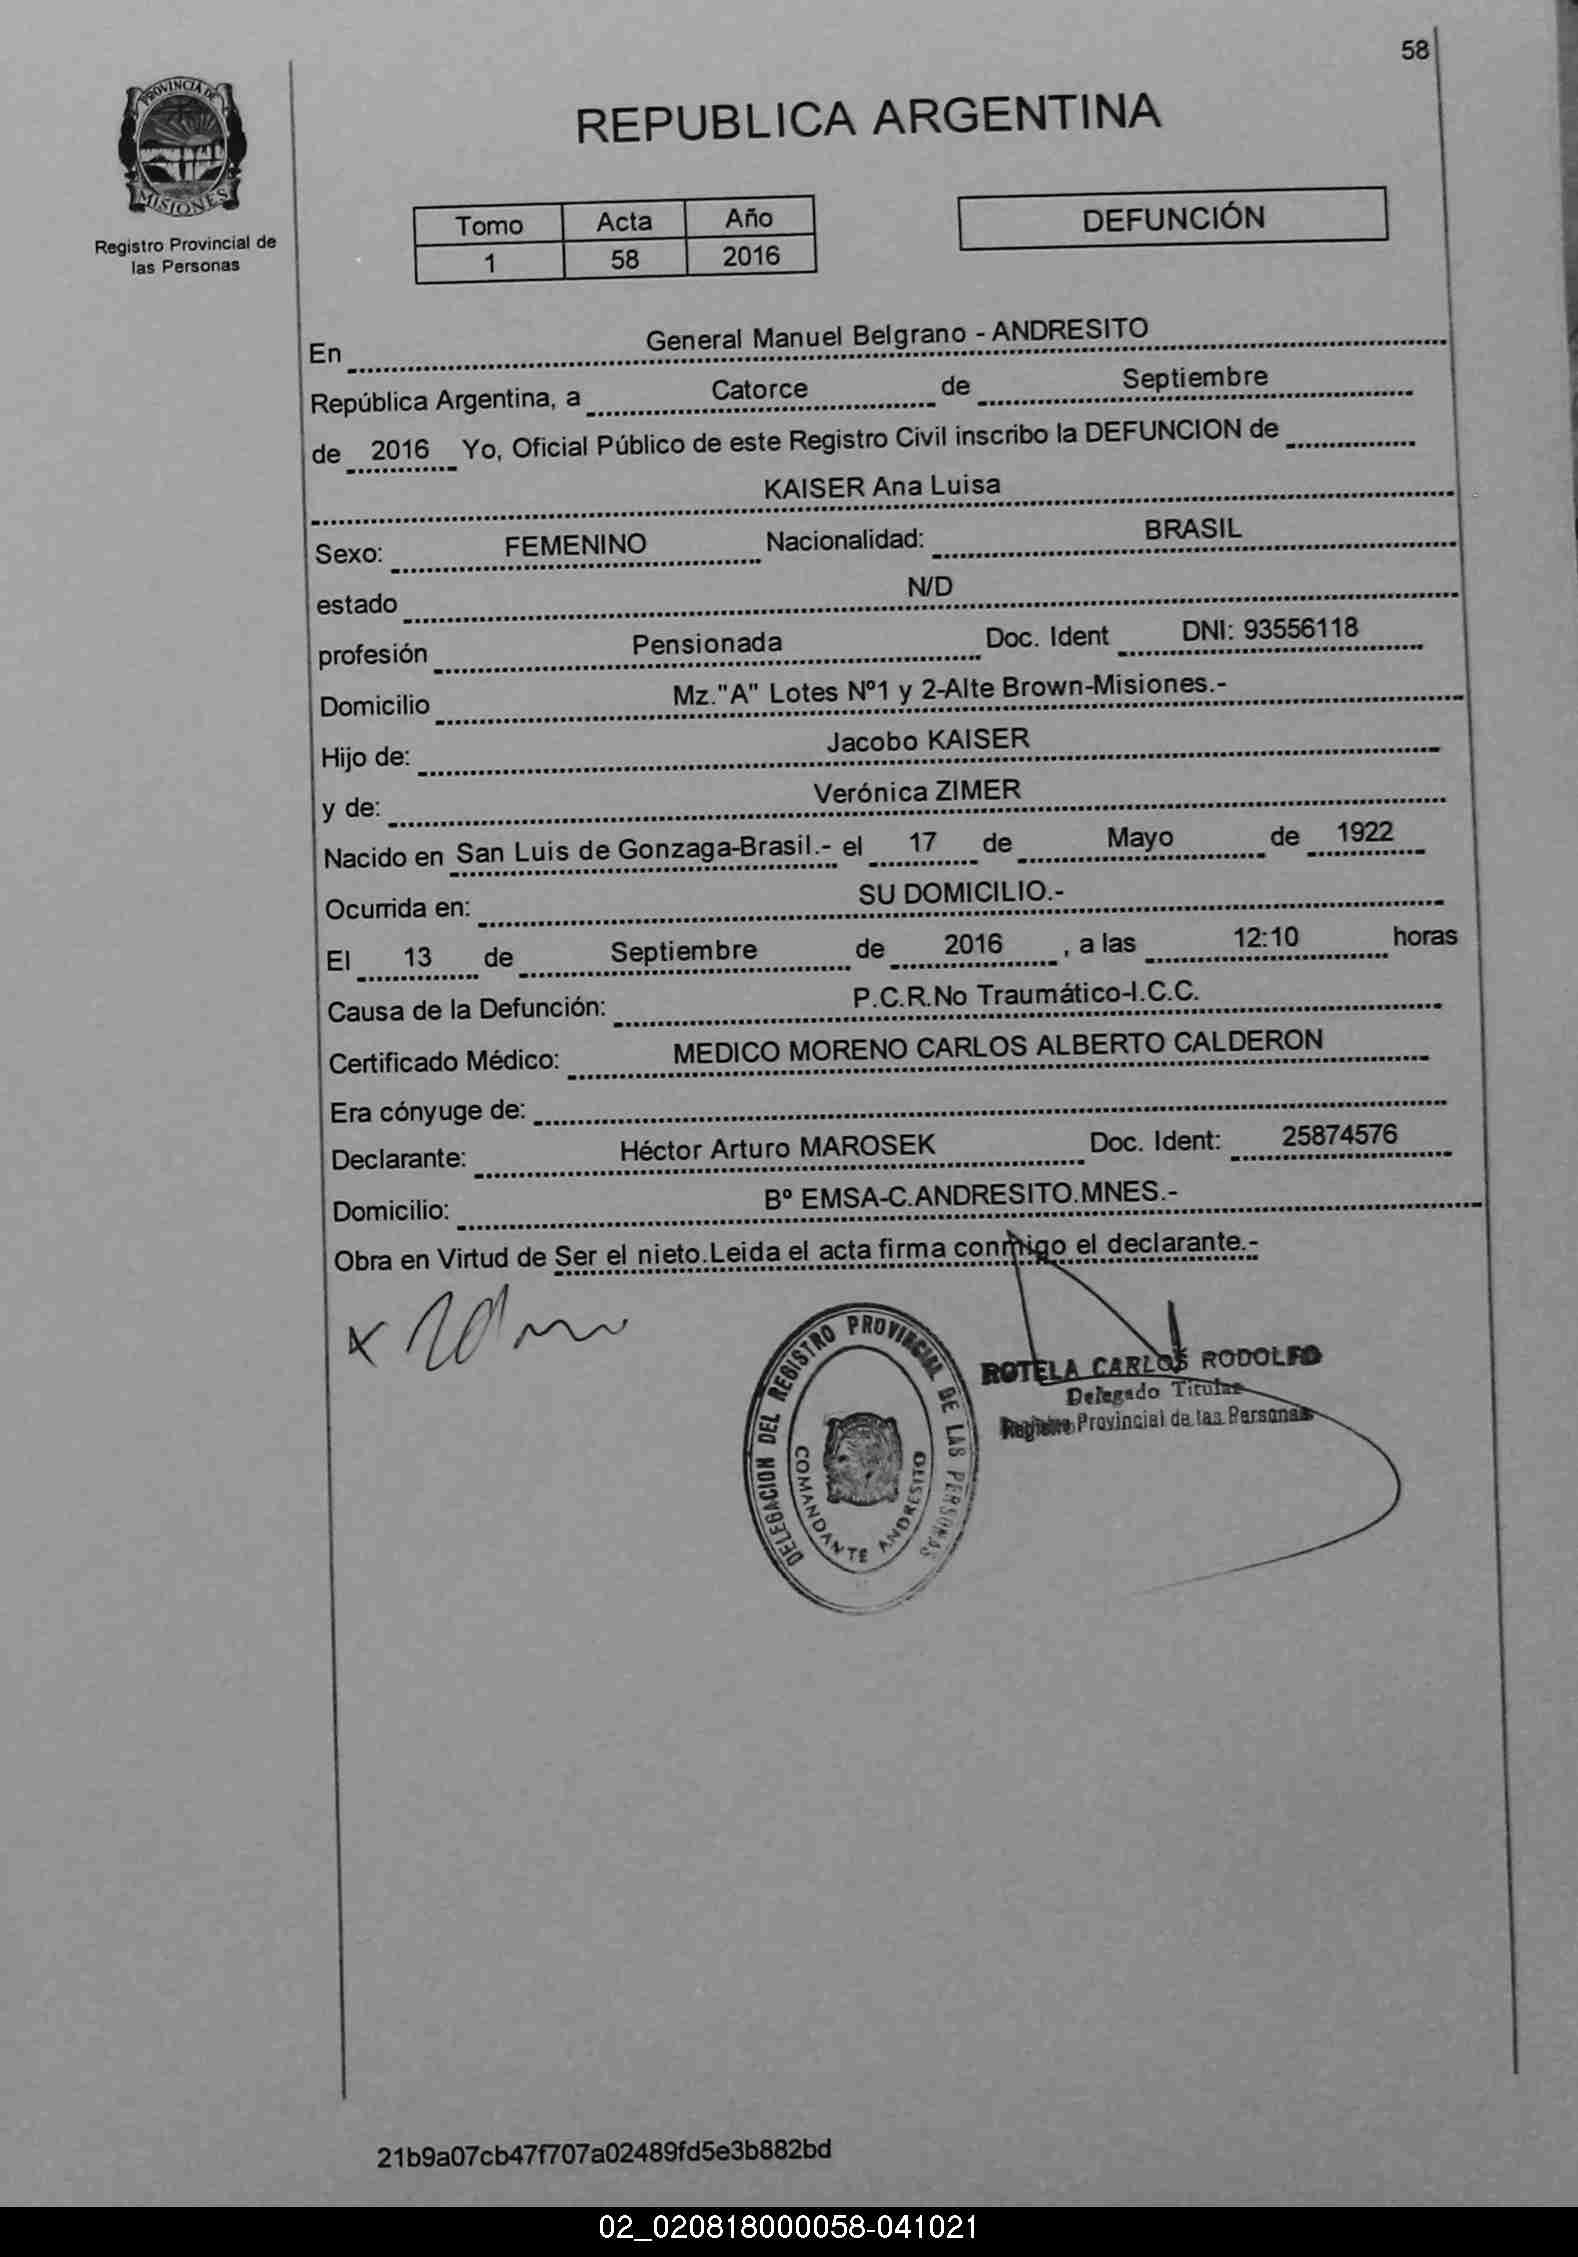 58
PROVINCIA DE
MISIONES
Registro Provincial de
las Personas
REPUBLICA ARGENTINA
Tomo Acta Año
1 58 2016
DEFUNCIÓN
En General Manuel Belgrano - ANDRESITO
República Argentina, a Catorce de Septiembre
de 2016 Yo, Oficial Público de este Registro Civil inscribo la DEFUNCION de
KAISER Ana Luisa
Sexo: FEMENINO Nacionalidad: BRASIL
estado N/D
profesión Pensionada Doc. Ident DNI: 93556118
Domicilio Mz."A" Lotes Nº1 y 2-Alte Brown-Misiones.-
Hijo de: Jacobo KAISER
y de: Verónica ZIMER
Nacido en San Luis de Gonzaga-Brasil.- el 17 de Mayo de 1922
Ocurrida en: SU DOMICILIO.-
El 13 de Septiembre de 2016, a las 12:10 horas
Causa de la Defunción: P.C.R.No Traumático-I.C.C.
Certificado Médico: MEDICO MORENO CARLOS ALBERTO CALDERON
Era cónyuge de:
Declarante: Héctor Arturo MAROSEK Doc. Ident: 25874576
Domicilio: Bº EMSA-C.ANDRESITO.MNES.-
Obra en Virtud de Ser el nieto.Leida el acta firma conmigo el declarante.-
DELEGACION DEL REGISTRO PROVINCIAL DE LAS PERSONAS
COMANDANTE ANDRESITO
ROTELA CARLOS RODOLFO
Delegado Titular
Registro Provincial de las Personas
21b9a07cb47f707a02489fd5e3b882bd
02_020818000058-041021